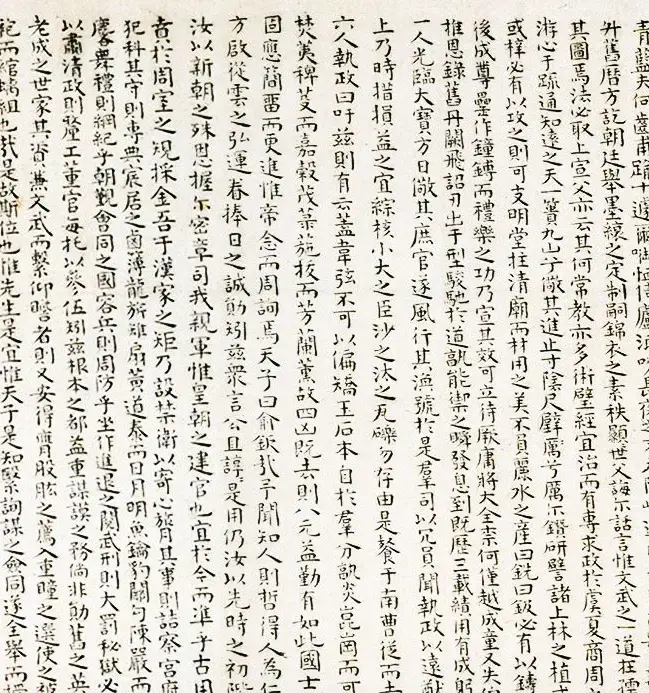 青藍夫何齒甫踰十遽爾
舊曆方訖朝廷舉墨縗之定制嗣錦衣之素秩顯世父誨示話言惟文武之一道在
其圖焉法必取上宣父亦云其何常教亦多術壁經宜治而有專求政於虞夏商周
游心于疏通知遠之天一簣九山于儆其進止寸陰尺璧厲兮厲尔鑽研譬諸上林之植
或梓必有以攻之則可支明堂柱清廟而材用之美不負麗水之産曰銑曰鈑必有以鑄
後成尊罍作鐘鎛而禮樂之功乃宣其效可立待厥庸將大全柰何僅越成童又失
推恩錄舊丹闕飛詔刃出于型駿馳於道孰能禦之瞬發息到既歷三載績用有成躬
一人光臨大寶方日儆其庶官遂風行其渙號於是羣司以冗員聞執政以遠猷
上乃時措損益之宜綜核小大之臣沙之汰之瓦礫勿存由是餐于南曹從而去
六人執政曰吁兹則有云蓋韋弦不可以偏矯玉石本自於羣分孰炎崑崗而可
焚荑稗芟而嘉穀茂菉葹拔而芳蘭薰故四凶既去則八元益勤有如此國士
固應簡畱而更進惟帝念而周詢焉天子曰俞欽哉予聞知人則哲得人為仁
方啟從雲之弘運眷捧日之誠勛矧兹衆言公且諄是用仍汝以先時之初階
汝以新朝之殊恩握尔密章司我親軍惟皇朝之建官也宜於今而準乎古周
賁於周室之規採金吾于漢家之矩乃設禁衛以寄心膂其事則詰察宮府
犯科其守則專典宸居之鹵簿龍旂雉扇黃道泰而日月明魚鑰豹關勾陳嚴而
舞禮則綱紀乎朝覲會同之國容兵則周防乎坐作進退之閱武刑則大罰秘獄必
以肅清政則釐工董官每托以參伍矧兹根本之郡益重謀謨之務倘非勛舊之英
老成之世家其資兼文武而繫仰瞻者則又安得膺股肱之薦入重瞳之選使之
紀而綰蝸組也哉是故斯位也惟先生是宜惟天子是知繄詢謀之僉同遂全舉而